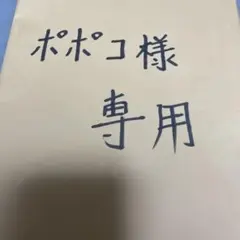 ポポコ様
専用